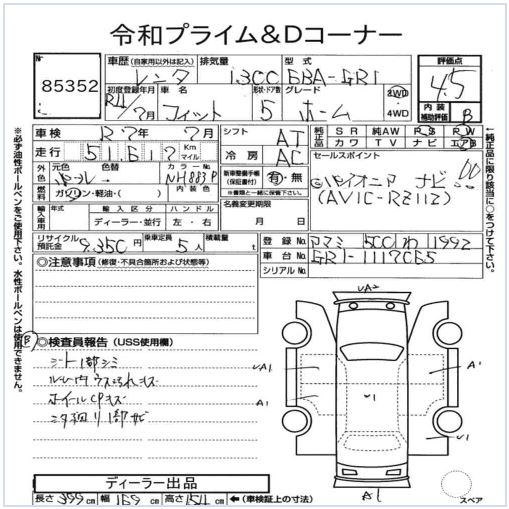 令和プライム&Dコーナー
No 85352
車歴 (自家用以外は記入) レンタ
排気量 1300
型式 6BA-GR1
評価点 4.5
初度登録年月 R4/7月
車名 フィット
形状・ドア数 5
グレード ホーム
2WD・4WD
内装補助評価 B
車検 R7年7月
シフト AT
純正品 SR 純AW PS PW
カワ TV ナビ エアB
走行 51,617 Km マイル
冷房 AC
外色 元色 パール 色替 カラーNo NH883P
新車整備手帳(保証書付) 有・無
※書類と一緒に保管して下さい。
セールスポイント
◎パイオニア ナビ
(AVIC-RZ112)
燃料 ガソリン・軽油・( ) 内装色
名義変更期限 月 日
輸入車用 年式 輸入区分 ハンドル
ディーラー・並行 左・右
リサイクル預託金 9,350円
乗車定員 5人
積載量 t
登録No 500 わ 1992
車台No GR1-1117065
シリアルNo
◎注意事項 (修復・不具合箇所および状態等)
※必ず油性ボールペンをご使用下さい。水性ボールペンは使用できません。
↑純正品に限り該当に○をつけて下さい。
Ⓑ ◎検査員報告 (USS使用欄)
シート1部シミ
ルーム内ウスヨゴレキズ
ホイールCPキズ
下廻り1部サビ
UA2
UA1
A1
A1
A1
U1
A1
ディーラー出品
長さ 399 cm 幅 169 cm 高さ 154 cm ←(車検証上の寸法)
スペア